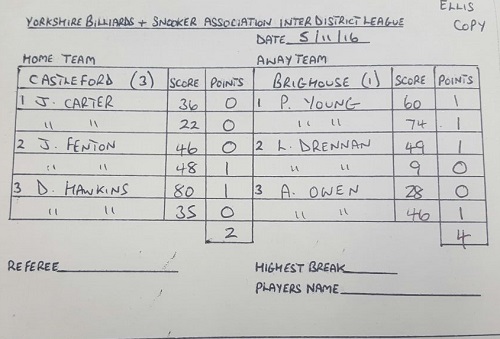 ELLIS
COPY
YORKSHIRE BILLIARDS + SNOOKER ASSOCIATION INTER DISTRICT LEAGUE
DATE 5/11/16
HOME TEAM AWAY TEAM
CASTLEFORD (3) SCORE POINTS BRIGHOUSE (1) SCORE POINTS
1 J. CARTER 36 0 1 P. YOUNG 60 1
" " 22 0 " " 74 1
2 J. FENTON 46 0 2 L. DRENNAN 49 1
" " 48 1 " " 9 0
3 D. HAWKINS 80 1 3 A. OWEN 28 0
" " 35 0 " " 46 1
2 4
REFEREE HIGHEST BREAK
PLAYERS NAME